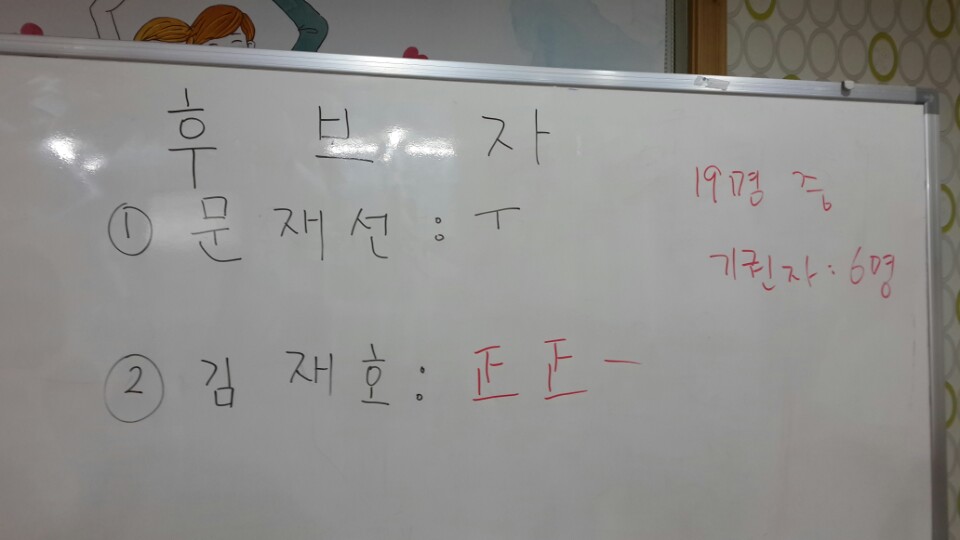 후 보 자
① 문 재 선 : 丅
② 김 재 호 : 正 正 一
19명 중
기권자 : 6명